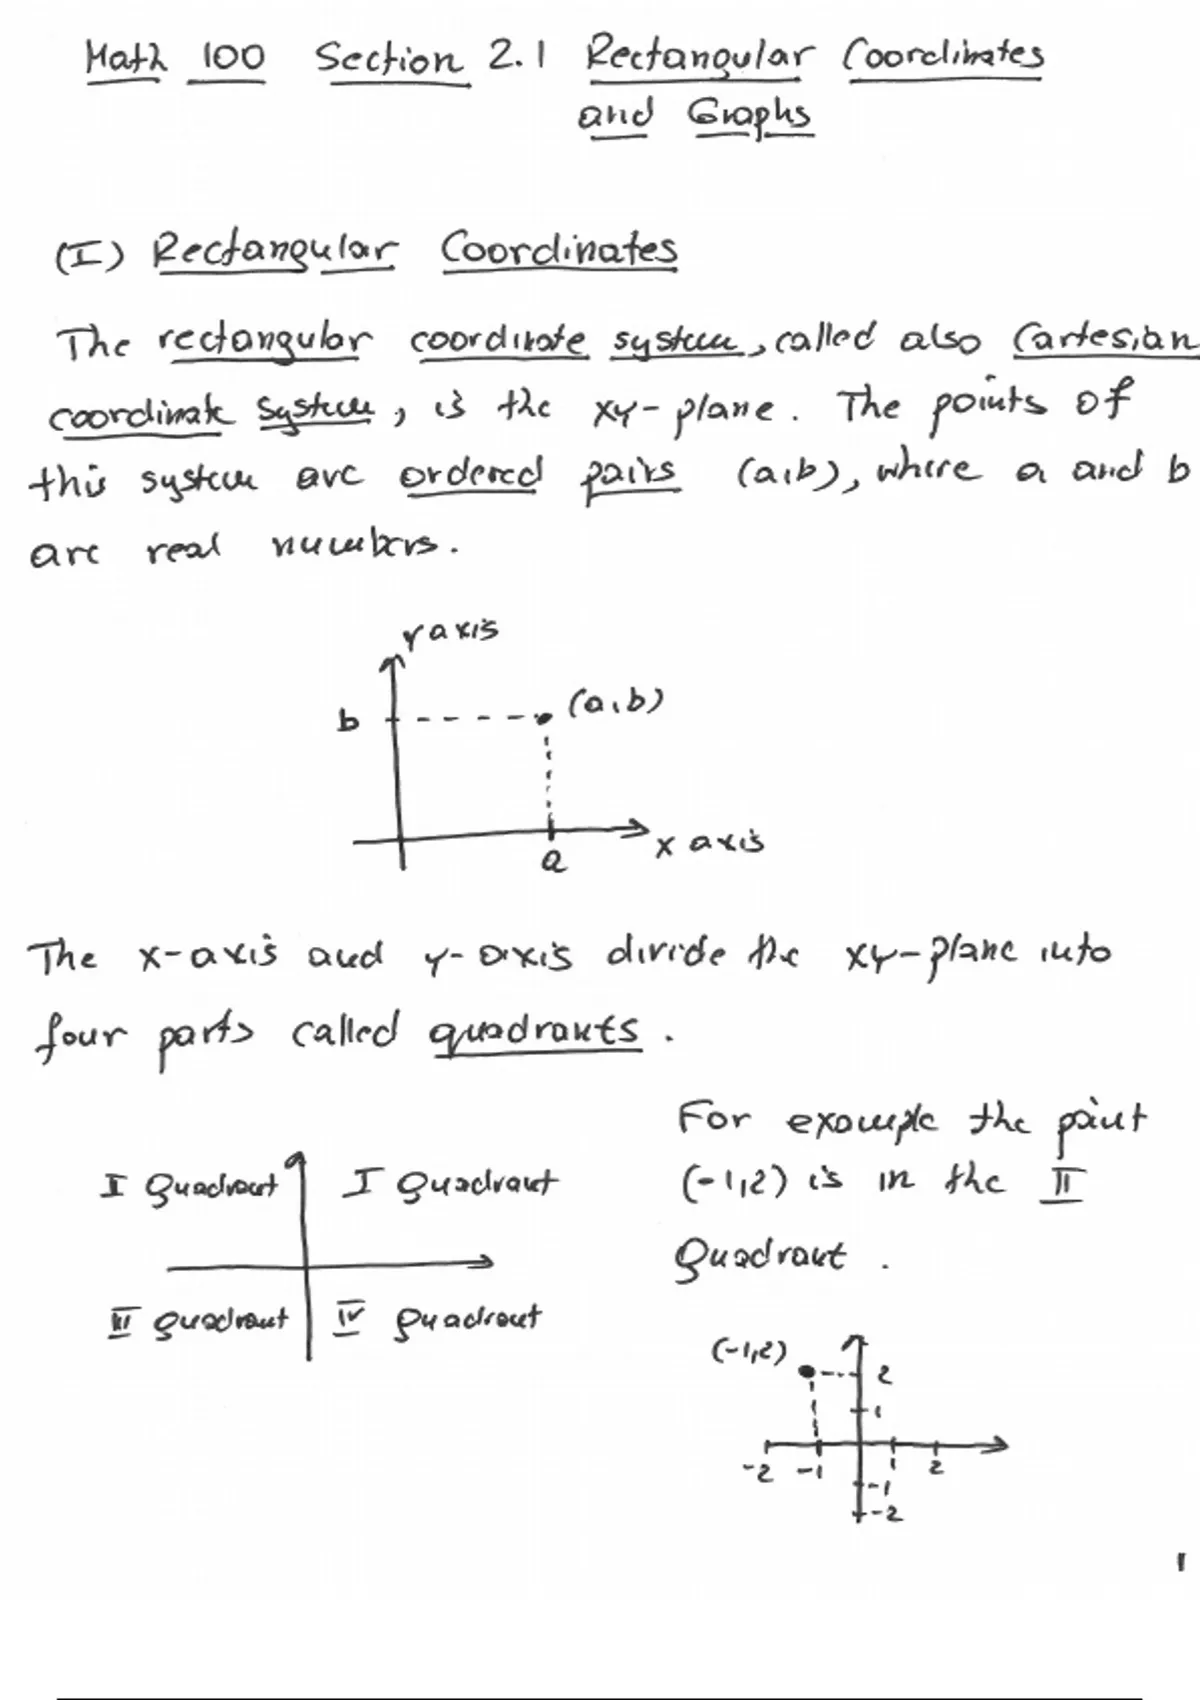 Math 100 Section 2.1 Rectangular Coordinates
and Graphs
(I) Rectangular Coordinates
The rectangular coordinate system, called also Cartesian
coordinate system, is the xy-plane. The points of
this system are ordered pairs (a,b), where a and b
are real numbers.
y axis
b
(a,b)
x axis
a
The x-axis and y-axis divide the xy-plane into
four parts called quadrants.
For example the point
(-1,2) is in the II
Quadrant.
II Quadrant I Quadrant
III Quadrant IV Quadrant
(-1,2)
2
1
-2 -1 1 2
-1
-2
1